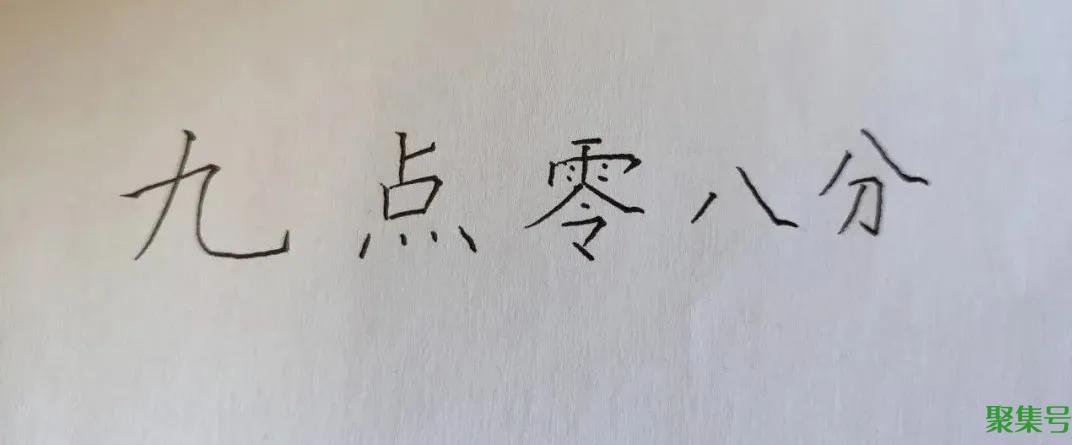 九点零八分
聚集号